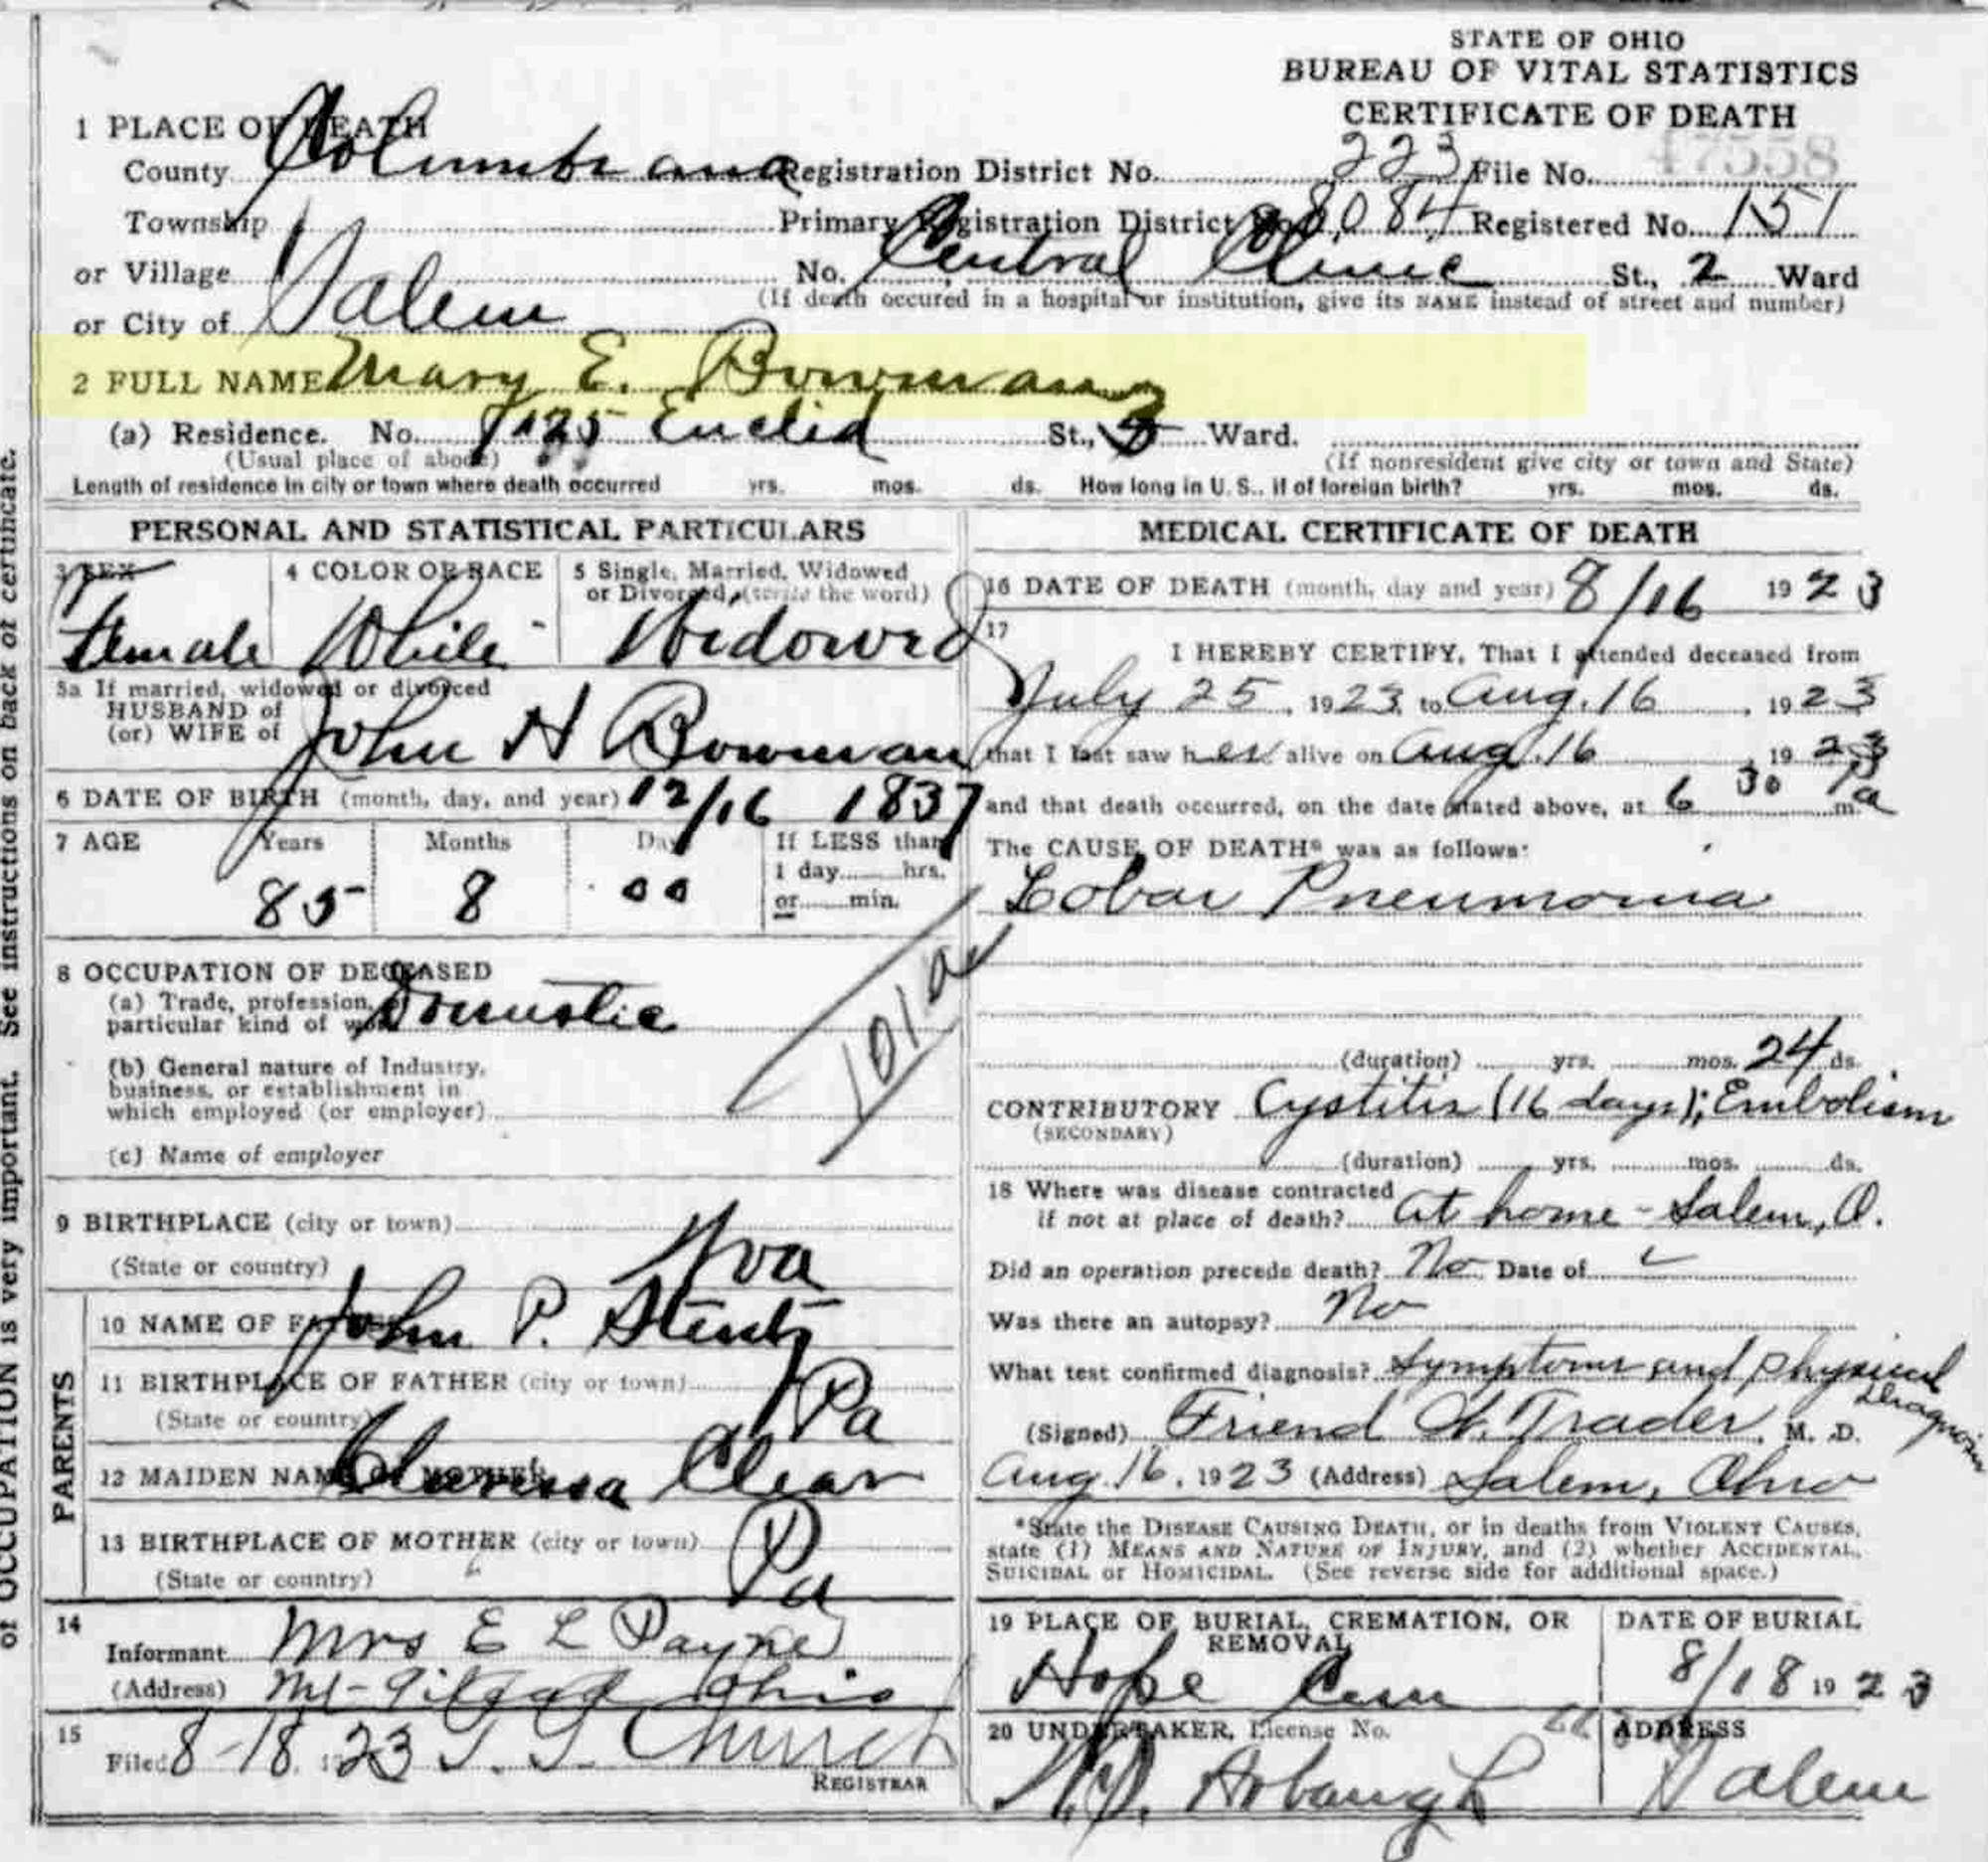 STATE OF OHIO
BUREAU OF VITAL STATISTICS
CERTIFICATE OF DEATH
1 PLACE OF DEATH
County Columbiana Registration District No. 223 File No. 47558
Township Primary Registration District No. 8084 Registered No. 151
or Village No. Central Clinic St., 2 Ward
(If death occured in a hospital or institution, give its NAME instead of street and number)
or City of Salem
2 FULL NAME Mary E. Bowman
(a) Residence. No. Euclid St., Ward.
(Usual place of abode) (If nonresident give city or town and State)
Length of residence in city or town where death occurred yrs. mos. ds. How long in U. S., if of foreign birth? yrs. mos. ds.
PERSONAL AND STATISTICAL PARTICULARS
3 SEX 4 COLOR OR RACE 5 Single, Married, Widowed
or Divorced, (write the word)
Female White Widowed
5a If married, widowed or divorced
HUSBAND of
(or) WIFE of John H Bowman
6 DATE OF BIRTH (month, day, and year) 12/16 1837
7 AGE Years Months Days If LESS than
1 day hrs.
85 8 00 or min.
8 OCCUPATION OF DECEASED
(a) Trade, profession, or
particular kind of work Domestic
(b) General nature of Industry,
business, or establishment in
which employed (or employer)
(c) Name of employer
101a
9 BIRTHPLACE (city or town)
(State or country)
PARENTS
10 NAME OF FATHER John P. Stentz
11 BIRTHPLACE OF FATHER (city or town)
(State or country) Pa
12 MAIDEN NAME OF MOTHER Clarissa Clear
13 BIRTHPLACE OF MOTHER (city or town)
(State or country) Pa
14
Informant Mrs E L Payne
(Address) Mt-Gilead Ohio
15
Filed 8-18, 1923 Church
REGISTRAR
MEDICAL CERTIFICATE OF DEATH
16 DATE OF DEATH (month, day and year) 8/16 1923
17
I HEREBY CERTIFY, That I attended deceased from
July 25, 1923, to Aug. 16, 1923
that I last saw her alive on Aug. 16, 1923
and that death occurred, on the date stated above, at 6 30 m.
The CAUSE OF DEATH* was as follows:
Lobar Pneumonia
(duration) yrs. mos. 24 ds.
CONTRIBUTORY Cystitis (16 days); Embolism
(SECONDARY)
(duration) yrs. mos. ds.
18 Where was disease contracted
if not at place of death? at home - Salem, O.
Did an operation precede death? No Date of
Was there an autopsy? No
What test confirmed diagnosis? Symptoms and physical diagnosis
(Signed) Friend Trader, M. D.
Aug. 16, 1923 (Address) Salem, Ohio
*State the DISEASE CAUSING DEATH, or in deaths from VIOLENT CAUSES,
state (1) MEANS AND NATURE OF INJURY, and (2) whether ACCIDENTAL,
SUICIDAL or HOMICIDAL. (See reverse side for additional space.)
19 PLACE OF BURIAL, CREMATION, OR REMOVAL DATE OF BURIAL
Hope Cem 8/18 1923
20 UNDERTAKER, License No. ADDRESS
Arbaugh Salem
of OCCUPATION is very important. See instructions on back of certificate.